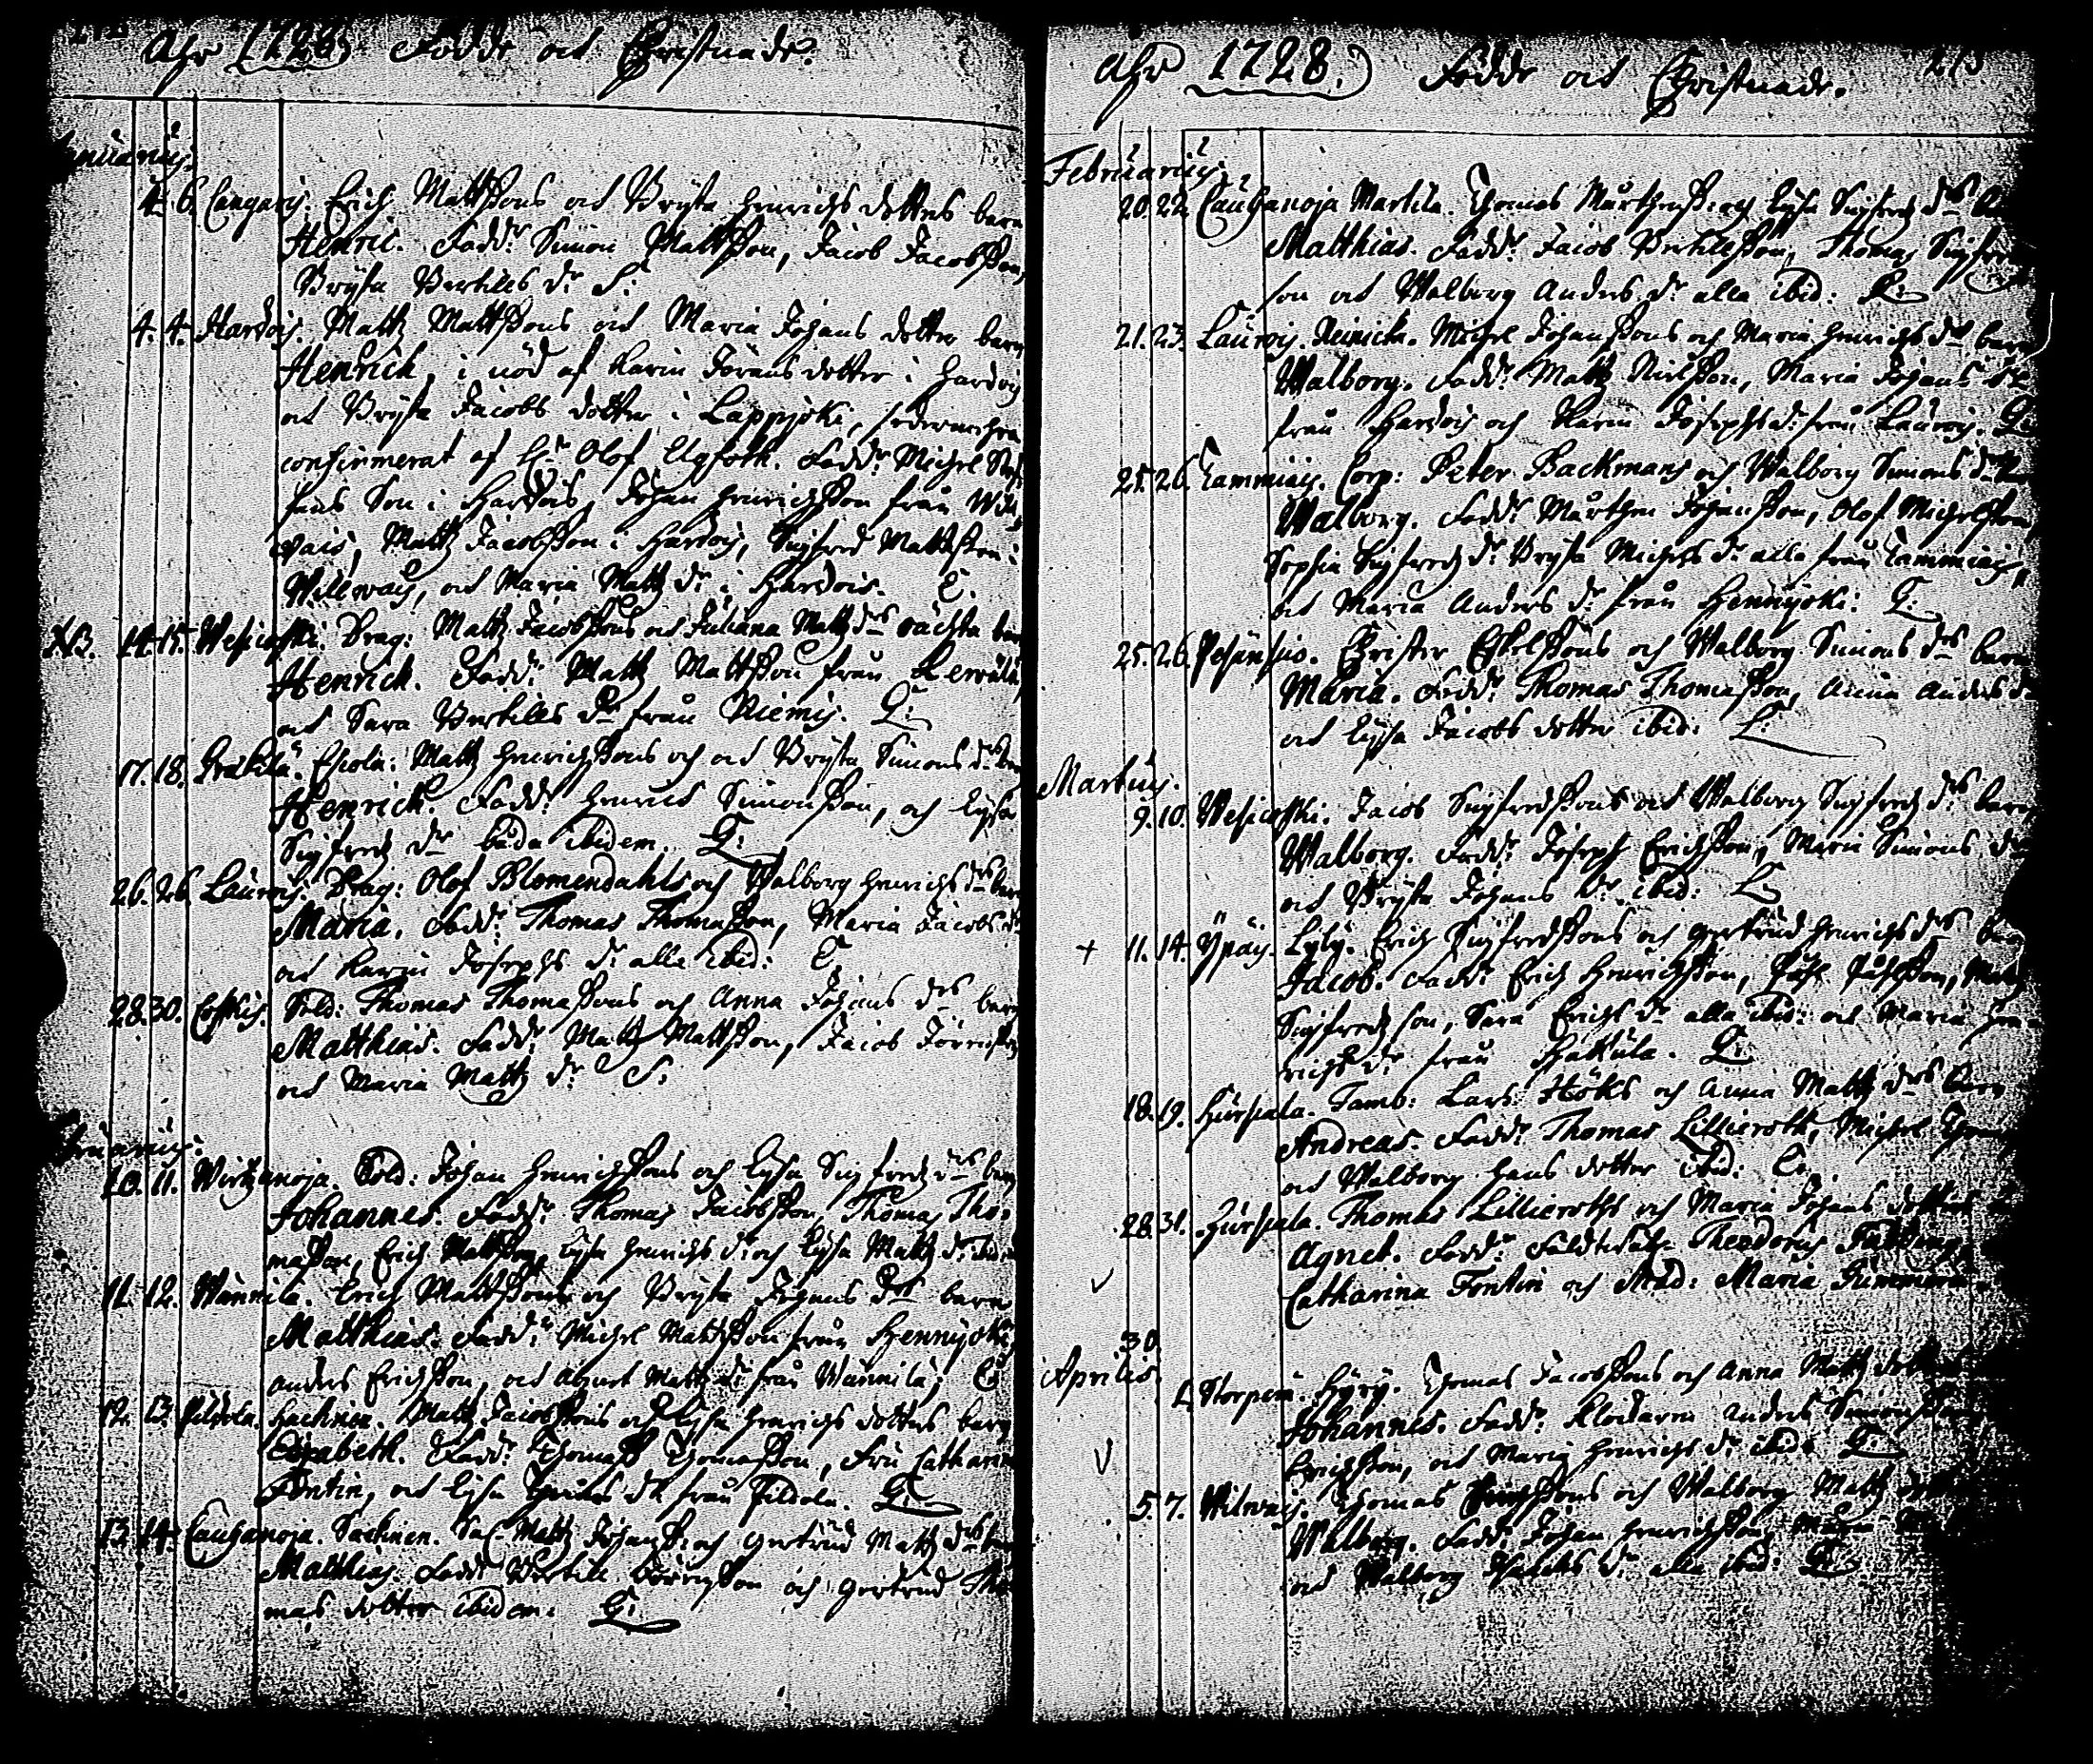 Åhr 1728. Födde och Christnade.
Januarius.
4. 6. Cangaris. Erich Mattssons och Brijta Henrichs dotters barn
Henric. Fadd: Simon Mattsson, Jacob Jacobsson,
Brijta Bertills dr. S:
4. 4. Hardois. Matts Mattssons och Maria Johans dotter barn
Henrick, i nöd af Karin Jörans dotter i Hardois
och Brijta Jacobs dotter i Lappjoki, sedermehra
confirmerat af Hr Olof Elgfoth. Fadd: Michel
sons Son i Hardois, Johan Henrichsson från Will
wais, Matts Jacobsson i Hardois, Sigfred Mattsson i
Willwais, och Maria Matts dr i Hardois. C.
NB. 14. 15. Wesicoski. Drag: Matts Jacobssons och Juliana Matts drs oächta barn
Henrick. Fadd: Matts Mattsson från Lewälä,
och Sara Bertills dr från Niemis. G:
17. 18. Präkilä. Matts Henrichssons och Brijta Simons drs barn
Henrick. Fadd: Henric Simonsson, och Lijsa
Sigfreds dr båda ibidem. G:
26. 26. Laurois. Drag: Olof Blomendahls och Walborg Henrichs drs barn
Maria. Fadd: Thomas Thomasson, Maria Jacobs dr
och Karin Josephs dr alla ibid: C.
28. 30. Coskis. Sold: Thomas Thomassons och Anna Johans drs barn
Matthias. Fadd: Matts Mattsson, Jacob Jörensson
och Maria Matts dr S:
Februarius.
10. 11. Wirtzanoja. Sold: Johan Henrichssons och Lijsa Sigfreds drs barn
Johannes. Fadd: Thomas Jacobsson, Thomas Tho-
masson, Erich Mattsson, Lijsa Henrichs dr och Lijsa Matts dr ibid:
11. 12. Wännilä. Erich Mattssons och Brijta Johans drs barn
Matthias. Fadd: Michel Mattsson från Hennijoki,
Anders Erichsson, och Agnet Matts dr från Wännilä; C
12. 13. Pildola. Hachinen. Matts Jacobssons och Lijsa Henrichs dotters barn
Elisabeth. Fadd: Thomas Thomasson, Fru Catharin
Fontin, och Lijsa dr från Pildola. G:
13. 14. Cauhanoja. Sackinen. Matts Johanss: och Gertrud Matts drs barn
Matthias. Fadd: Bertill Börjesson och Gertrud Tho
mas dotter ibidem. G:
Åhr 1728. Födde och Christnade. 213
Februarius.
20. 22. Cauhanoja Martila. Thomas Mårthenss: och Lijsa Sigfreds drs
Matthias. Fadd: Jacob Bertillsson, Thomas Sigfred
son och Walborg Anders dr alla ibid: G:
21. 23. Laurois. Reinicka. Michel Johanssons och Maria Henrichs drs barn
Walborg. Fadd: Matts Nilsson, Maria Johans dr
från Hardois och Karin Josephs dr från Laurois. G:
25. 26. Tammiais. Corp: Peter Backmans och Walborg Simons drs
Walborg. Fadd: Mårthen Johansson, Olof Michelsson,
Sophia Sigfreds dr Brijta Michels dr alla från Tammiais,
och Maria Anders dr från Hennijoki. G:
25. 26. Pesänsuo. Christer Eskelssons och Walborg Simons drs barn
Maria. Fadd: Thomas Thomasson, Anna Anders dr
och Lijsa Jacobs dotter ibid: L:
Martius.
9. 10. Wesicoski. Jacob Sigfredssons och Walborg Sigfreds drs barn
Walborg. Fadd: Joseph Erichsson, Maria Simons dr
och Brijta Johans dr ibid: L
+ 11. 14. Ypäis. Lyly. Erich Sigfredssons och Gertrud Henrichs drs barn
Jacob. Fadd: Erich Henrichsson, Påhl Påhlsson, Matts
Sigfreds son, Sara Erichs dr alla ibid: och Maria Hen-
richs dr från Hattula. G:
18. 19. Hurskala. Tamb: Lars Höks och Anna Matts drs barn
Andreas. Fadd: Thomas Lillieroth, Michel
och Walborg Hans dotter ibid: C.
28. 31. Hurskala. Thomas Lillieroths och Maria Johans dotters
Agnet. Fadd: Theodorus
Catharina Fontin och Maria
30
Aprilis.
1. Storpeni. Hyry. Thomas Jacobssons och Anna Matts dotters
Johannes. Fadd: Klockaren Anders Simonsson
Erichsson, och Maria Henrichs dr ibid: G:
5. 7. Wilwais. Thomas Erichssons och Walborg Matts
Walborg. Fadd: Johan Henrichsson, Maria
och Walborg dr alla ibid: G: